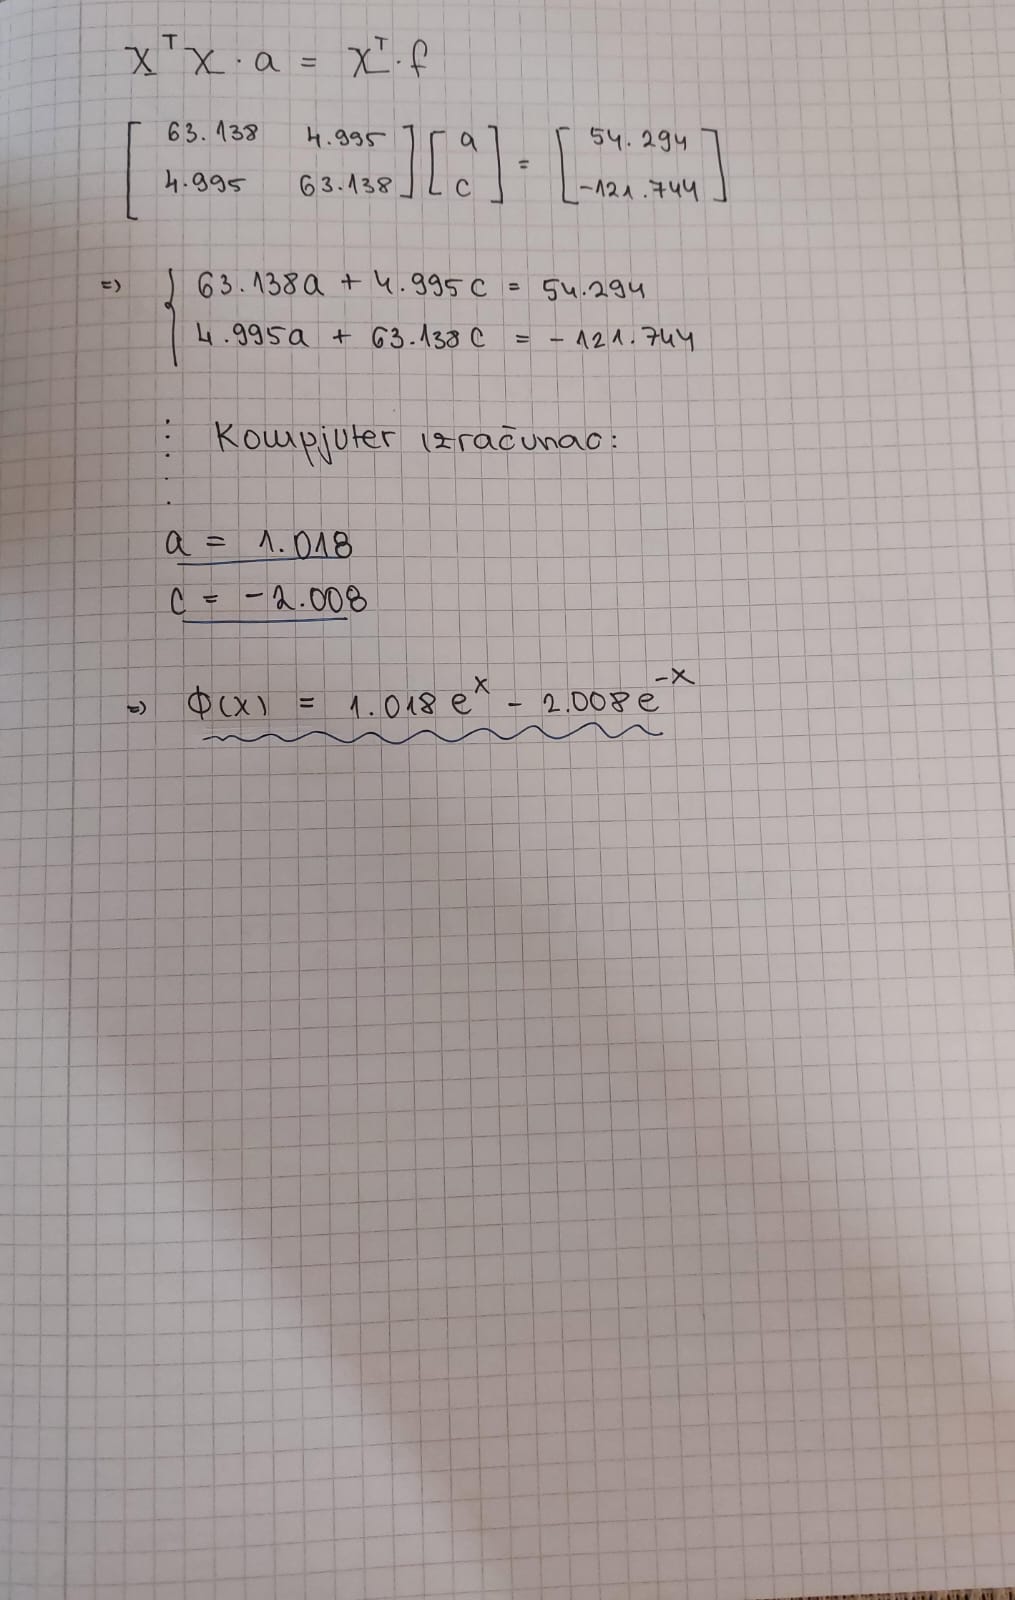 X^T X · a = X^T · f
[ 63.138 4.995 ] [ a ] = [ 54.294 ]
[ 4.995 63.138 ] [ c ] [ -121.744 ]
=> { 63.138a + 4.995c = 54.294
4.995a + 63.138c = -121.744
⋮ Kompjuter izračunao:
a = 1.018
c = -2.008
=> Φ(x) = 1.018e^x - 2.008e^-x